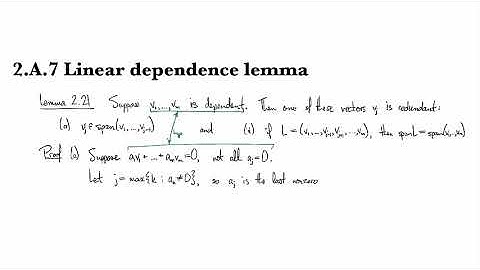 2.A.7 Linear dependence lemma
Lemma 2.21 Suppose v₁,...,vₘ is dependent. Then one of these vectors vⱼ is redundant:
(a) vⱼ ∈ span(v₁,...,vⱼ₋₁) and (b) if L = (v₁,...,vⱼ₋₁,vⱼ₊₁,...,vₘ), then span L = span(v₁,...,vₘ)
Proof (a) Suppose a₁v₁ + ... + aₘvₘ = 0, not all aⱼ = 0.
Let j = max{k : aₖ ≠ 0}, so aⱼ is the last nonzero